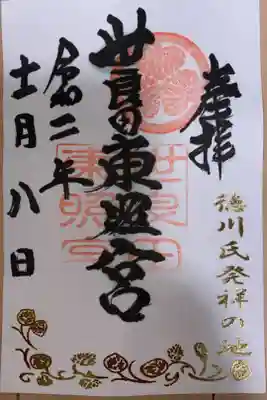 奉拝
徳川氏発祥の地
世良田東照宮
世良田
東照宮
令和二年
十一月八日